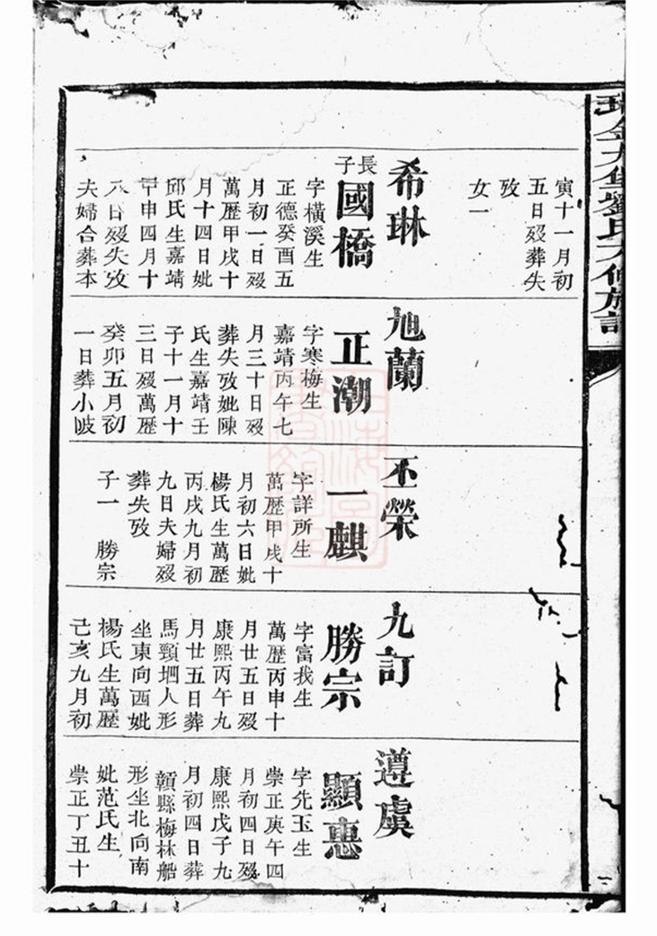 寅十一月初
五日歿葬失
攷
女一
希琳
長子國橋
字橫溪生
正德癸酉五
月初一日歿
萬歷甲戌十
月十四日妣
邱氏生嘉靖
甲申四月十
八日歿失攷
夫婦合葬本
旭蘭
正潮
字寒梅生
嘉靖丙午七
月三十日歿
葬失攷妣陳
氏生嘉靖壬
子十一月十
三日歿萬歷
癸卯五月初
一日葬小陂
丕榮
一麒
字詳所生
萬歷甲戌十
月初六日妣
楊氏生萬歷
丙戌九月初
九日夫婦歿
葬失攷
子一 勝宗
九訂
勝宗
字富我生
萬歷丙申十
月廿五日歿
康熙丙午九
月廿五日葬
馬頸堋人形
坐東向西妣
楊氏生萬歷
己亥九月初
遵虞
顯惠
字先玉生
崇正庚午四
月初四日歿
康熙戊子九
月初四日葬
贛縣梅林船
形坐北向南
妣范氏生
崇正丁丑十